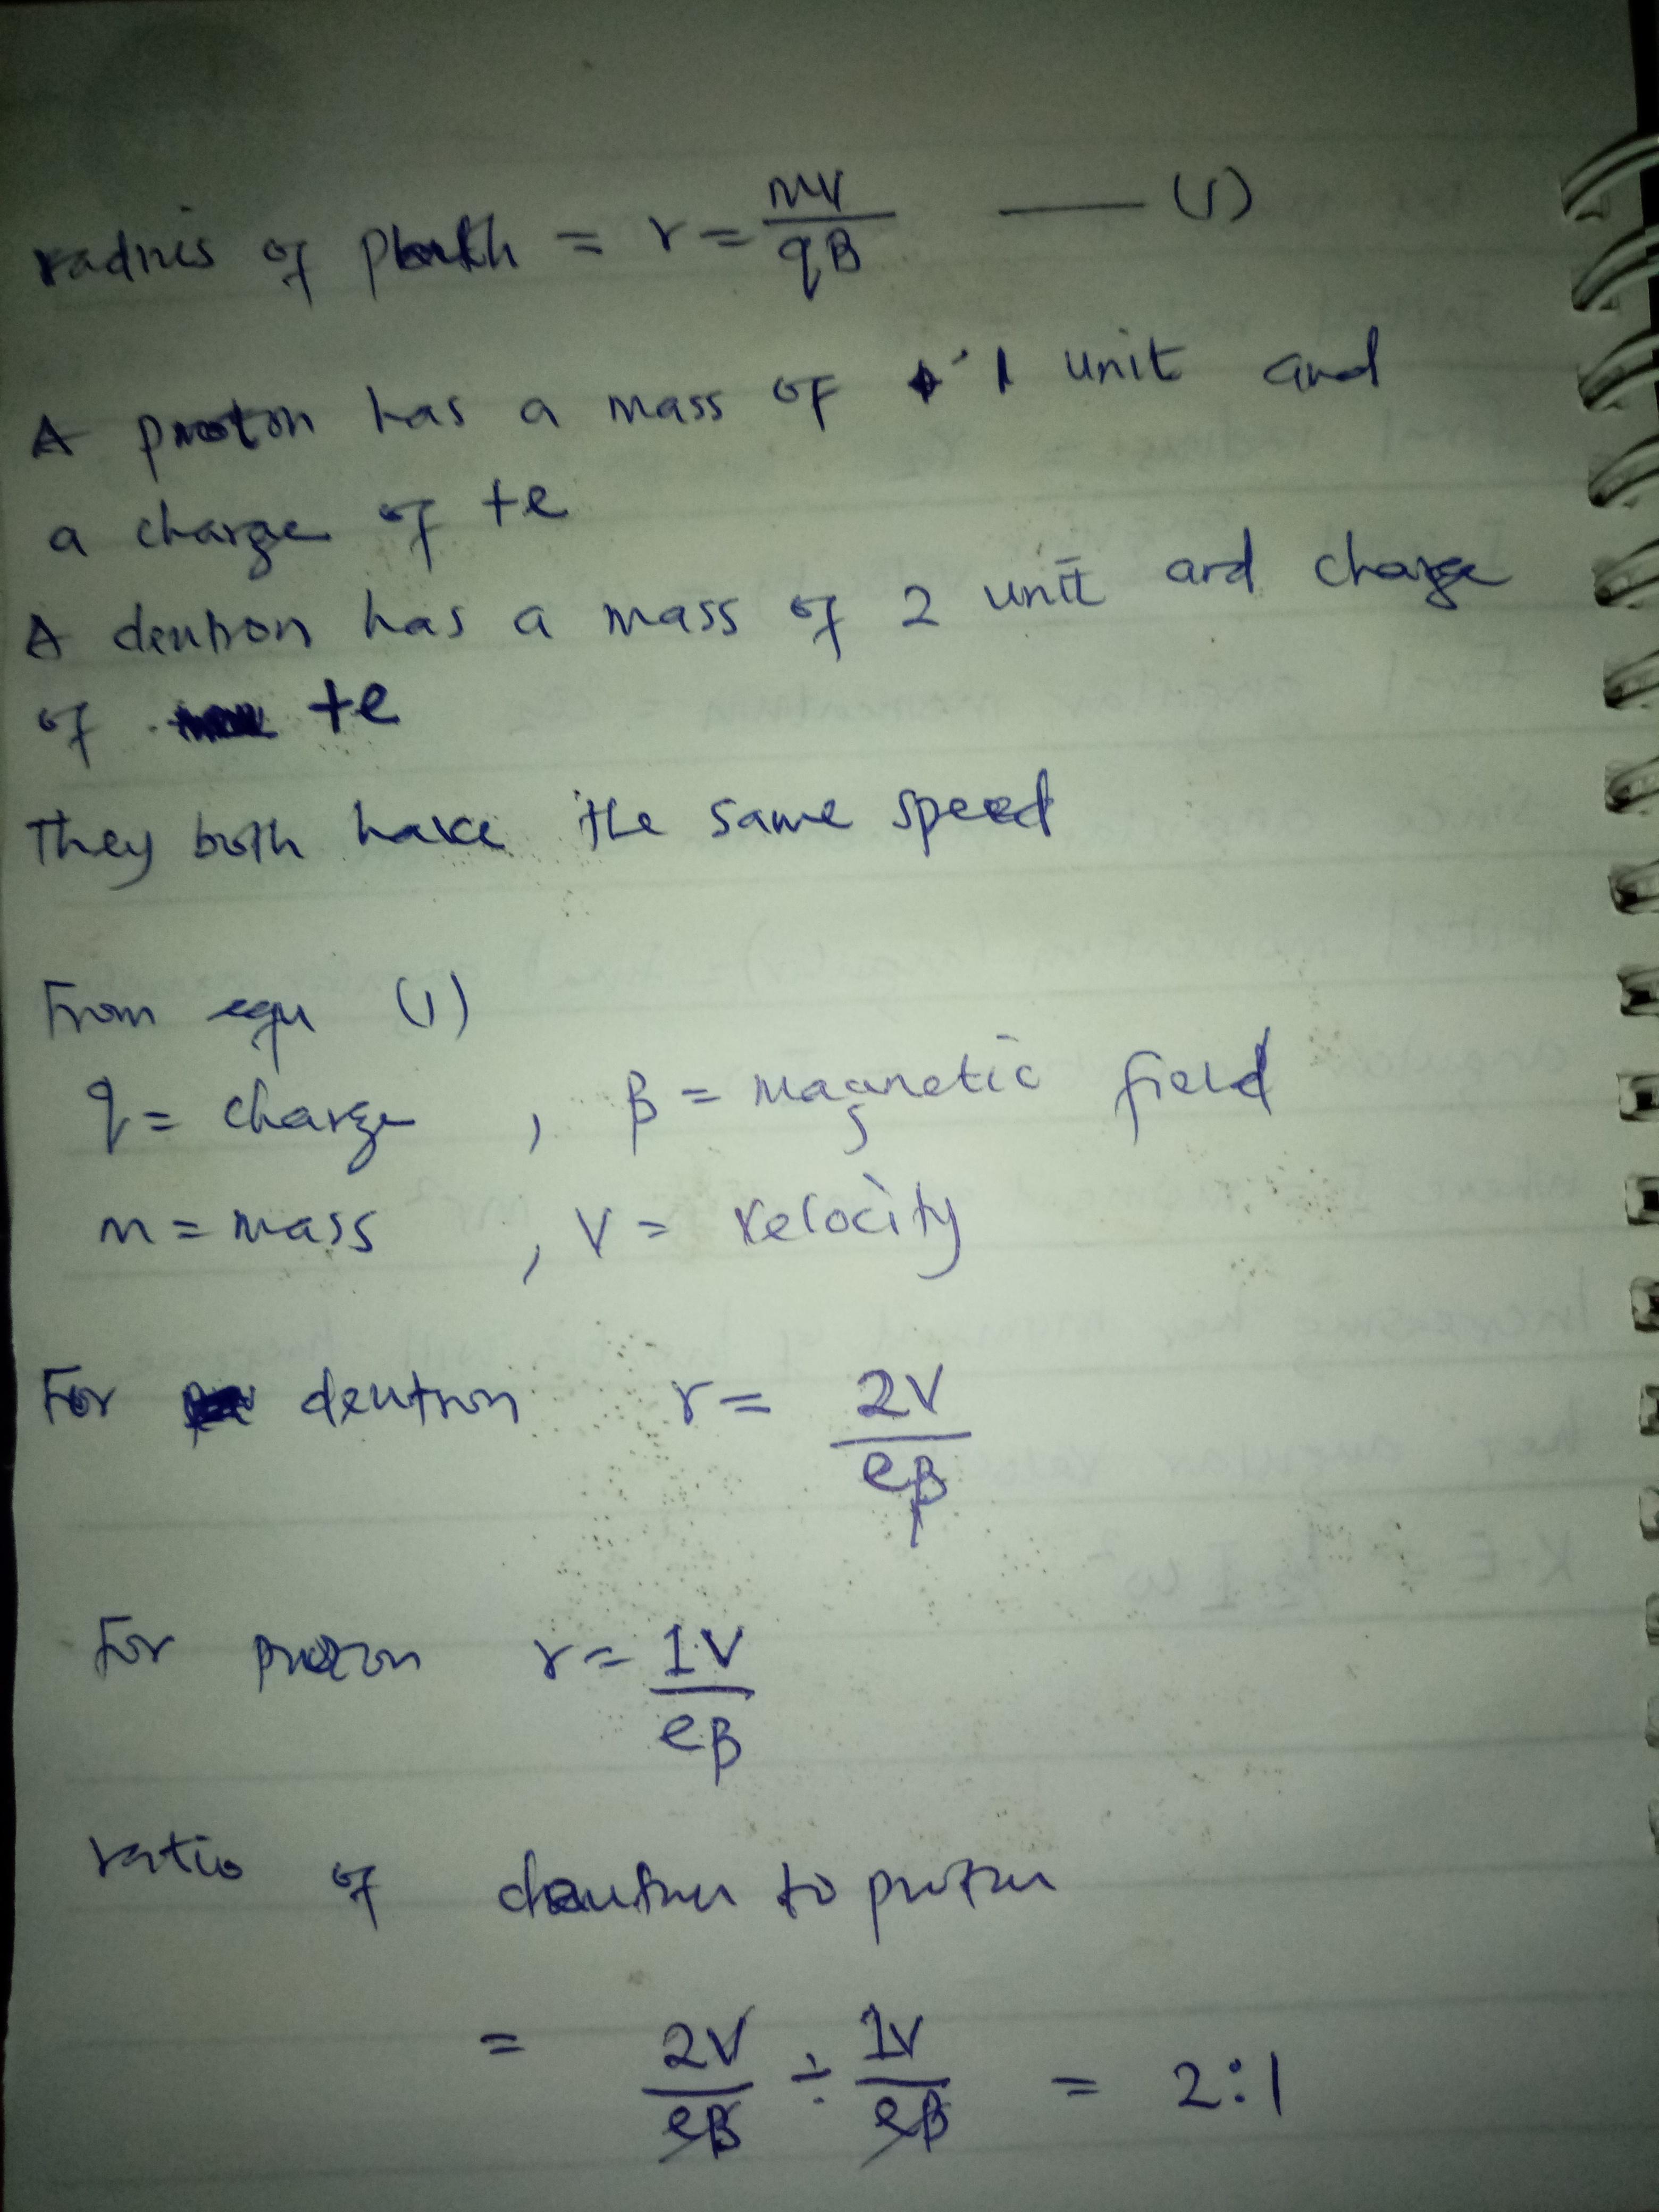 radius of path = r = mv/qB —— (1)
A proton has a mass of 1 unit and
a charge of +e
A deutron has a mass of 2 unit and charge
of +e
They both have the same speed
From equ (1)
q = charge , β = magnetic field
m = mass , V = velocity
For deutron r = 2V/eβ
For proton r = 1V/eβ
ratio of deutron to proton
= 2V/eβ ÷ 1V/eβ = 2:1